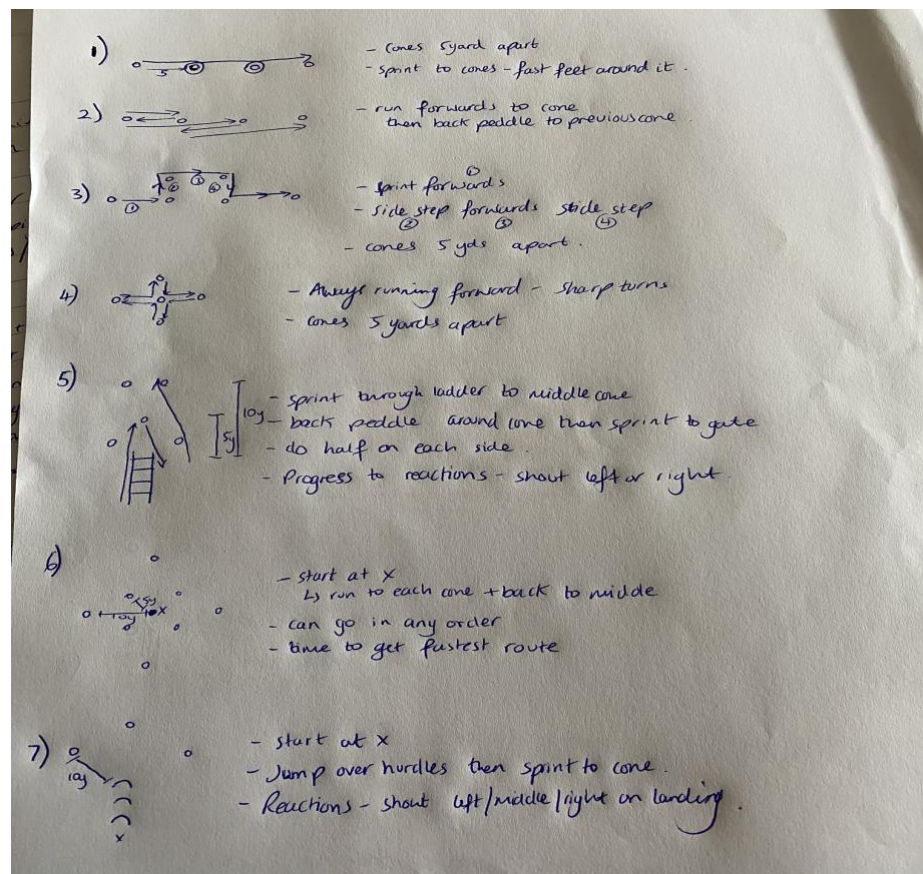 1) - Cones 5yard apart
5 - sprint to cones - fast feet around it.
2) - run forwards to cone
then back peddle to previous cone
① 
3) - sprint forwards
① ② ③ ④
- side step forwards side step
② ③ ④
- cones 5 yds apart.
4) - Always running forward - sharp turns
- cones 5 yards apart
5) 5y 10y - sprint through ladder to middle cone
- back peddle around cone then sprint to gate
- do half on each side.
- Progress to reactions - shout left or right.
6) - start at x
↳ run to each cone + back to midde
5y
10y x
- can go in any order
- time to get fastest route
7) - start at x
10y - Jump over hurdles then sprint to cone.
- Reactions - shout left/middle/right on landing.
x